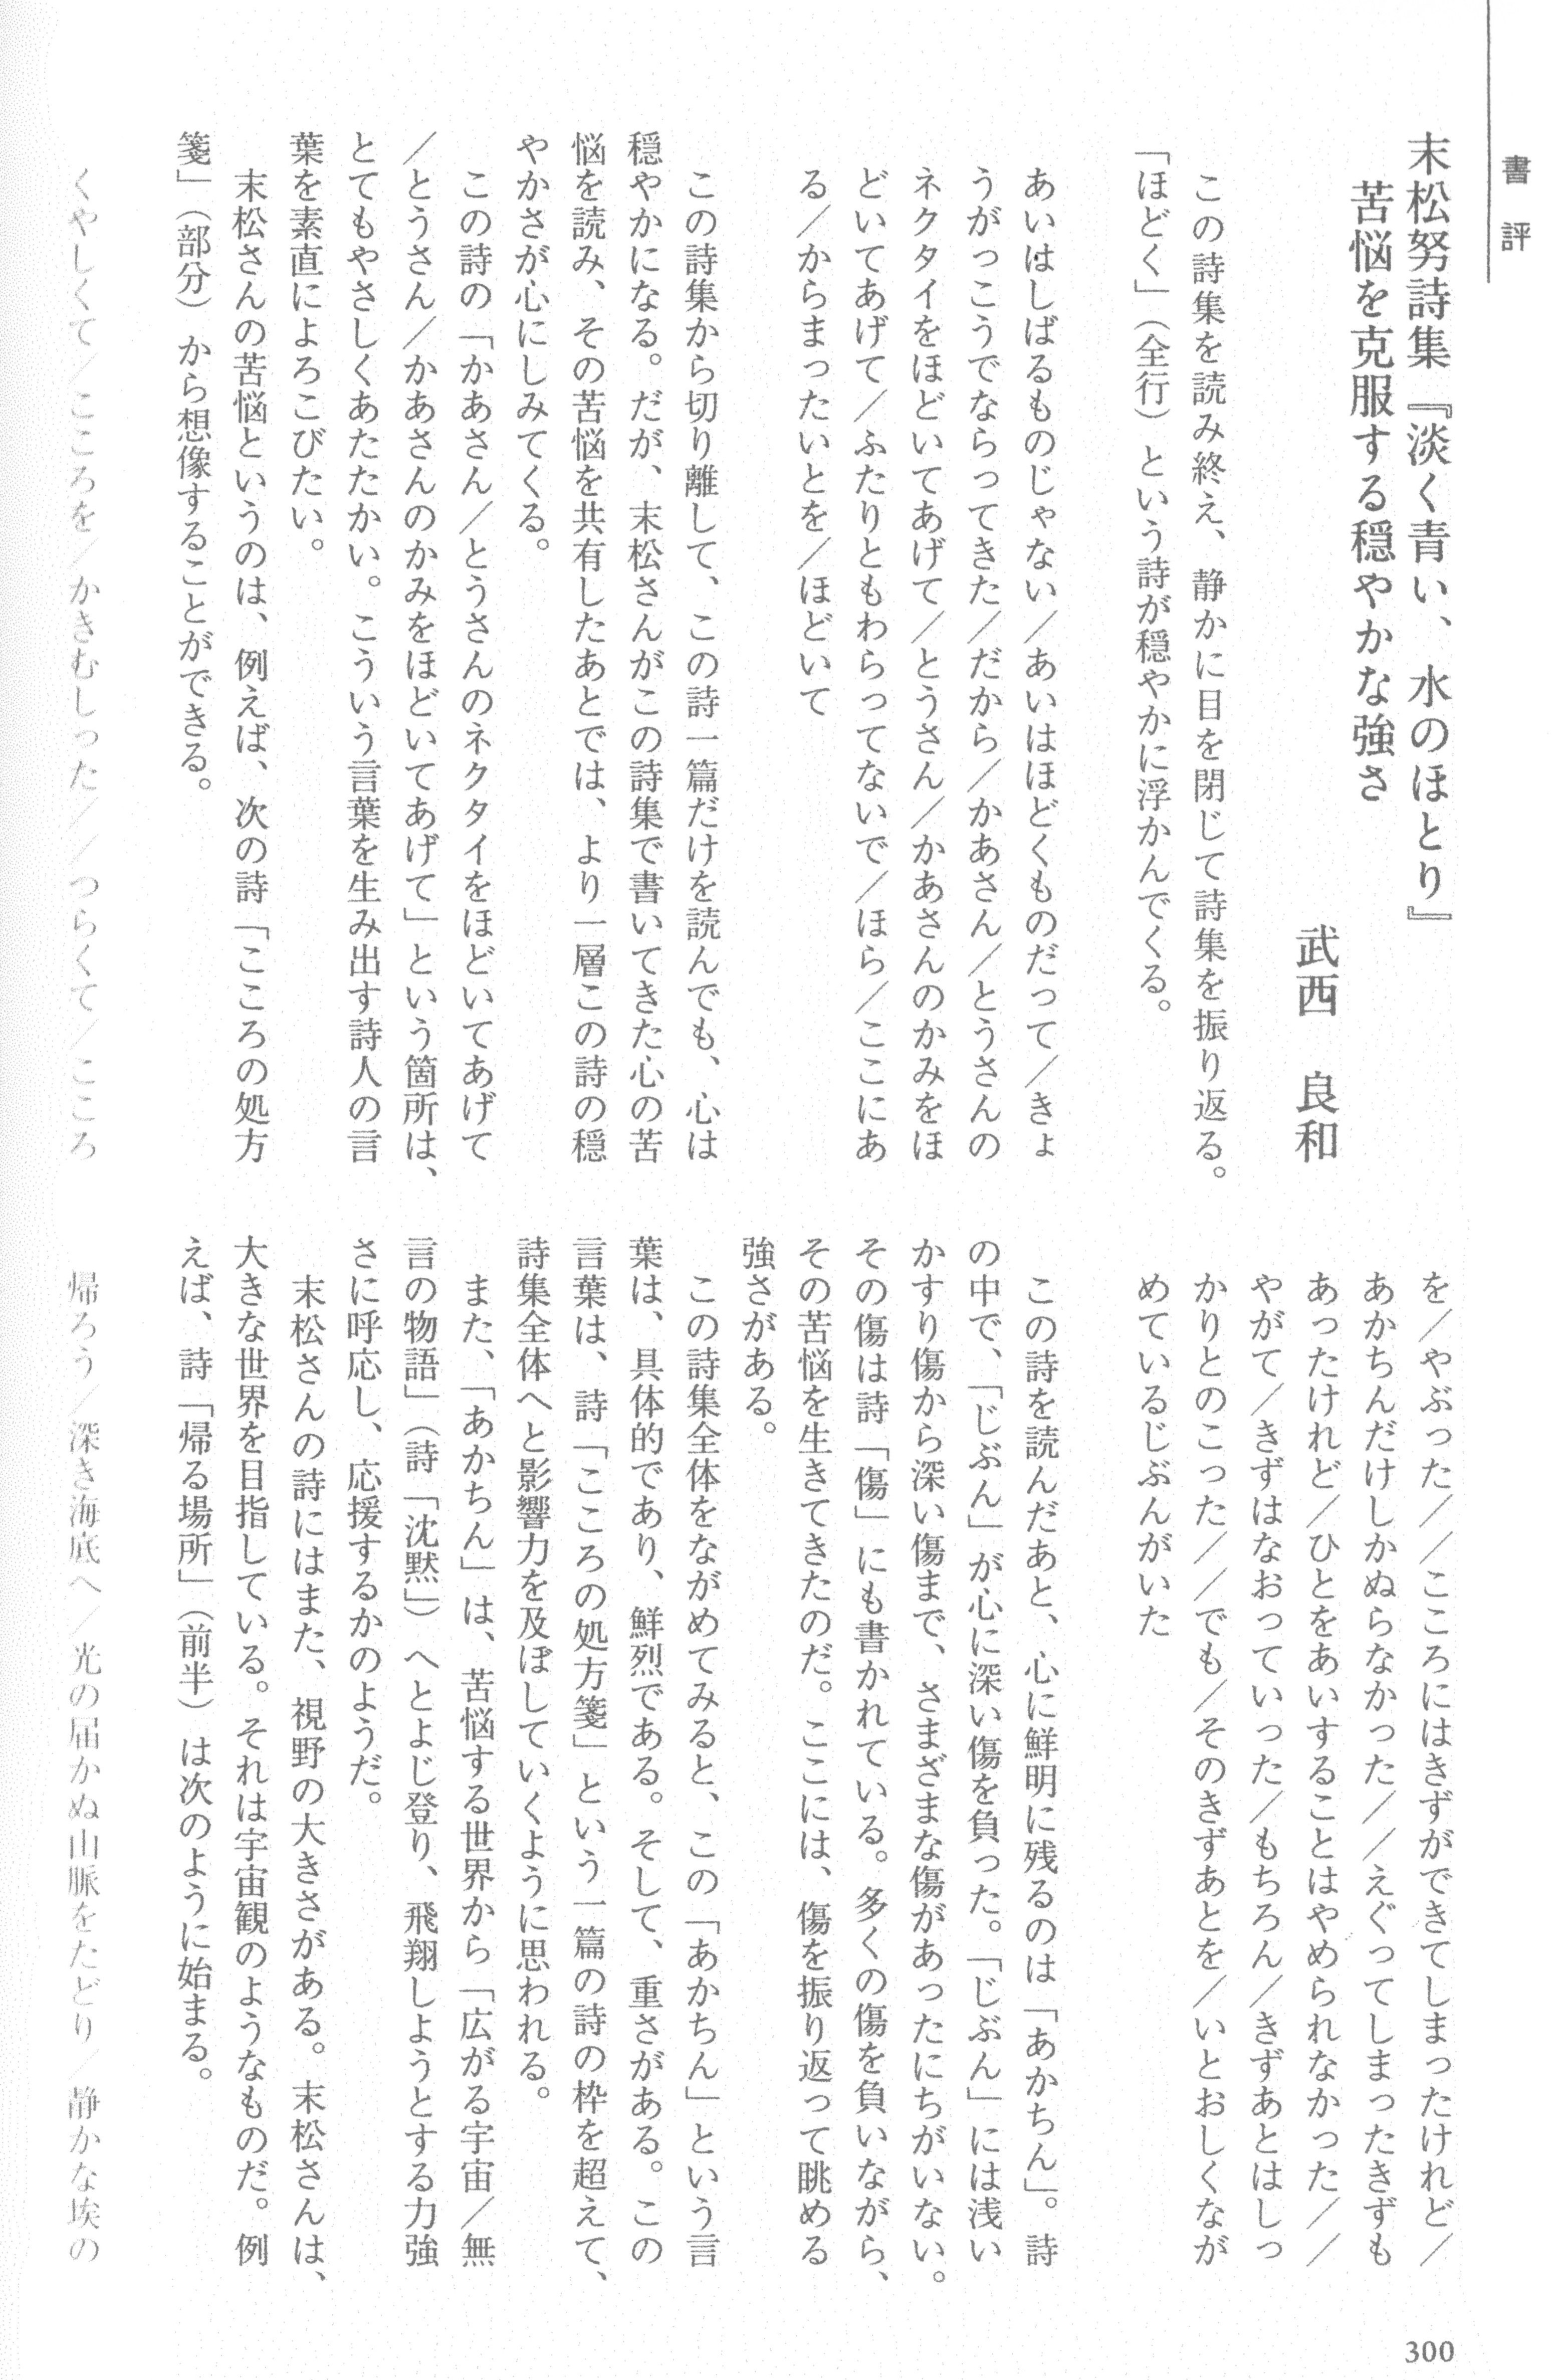 書評
末松努詩集『淡く青い、水のほとり』
苦悩を克服する穏やかな強さ
武西　良和
この詩集を読み終え、静かに目を閉じて詩集を振り返る。
「ほどく」（全行）という詩が穏やかに浮かんでくる。
あいはしばるものじゃない／あいはほどくものだって／きょ
うがっこうでならってきた／だから／かあさん／とうさんの
ネクタイをほどいてあげて／とうさん／かあさんのかみをほ
どいてあげて／ふたりともわらってないで／ほら／ここにあ
る／からまったいとを／ほどいて
この詩集から切り離して、この詩一篇だけを読んでも、心は
穏やかになる。だが、末松さんがこの詩集で書いてきた心の苦
悩を読み、その苦悩を共有したあとでは、より一層この詩の穏
やかさが心にしみてくる。
この詩の「かあさん／とうさんのネクタイをほどいてあげて
／とうさん／かあさんのかみをほどいてあげて」という箇所は、
とてもやさしくあたたかい。こういう言葉を生み出す詩人の言
葉を素直によろこびたい。
末松さんの苦悩というのは、例えば、次の詩「こころの処方
箋」（部分）から想像することができる。
くやしくて／こころを／かきむしった／／つらくて／こころ
を／やぶった／／こころにはきずができてしまったけれど／
あかちんだけしかぬらなかった／／えぐってしまったきずも
あったけれど／ひとをあいすることはやめられなかった／／
やがて／きずはなおっていった／もちろん／きずあとはしっ
かりとのこった／／でも／そのきずあとを／いとおしくなが
めているじぶんがいた
この詩を読んだあと、心に鮮明に残るのは「あかちん」。詩
の中で、「じぶん」が心に深い傷を負った。「じぶん」には浅い
かすり傷から深い傷まで、さまざまな傷があったにちがいない。
その傷は詩「傷」にも書かれている。多くの傷を負いながら、
その苦悩を生きてきたのだ。ここには、傷を振り返って眺める
強さがある。
この詩集全体をながめてみると、この「あかちん」という言
葉は、具体的であり、鮮烈である。そして、重さがある。この
言葉は、詩「こころの処方箋」という一篇の詩の枠を超えて、
詩集全体へと影響力を及ぼしていくように思われる。
また、「あかちん」は、苦悩する世界から「広がる宇宙／無
言の物語」（詩「沈黙」）へとよじ登り、飛翔しようとする力強
さに呼応し、応援するかのようだ。
末松さんの詩にはまた、視野の大きさがある。末松さんは、
大きな世界を目指している。それは宇宙観のようなものだ。例
えば、詩「帰る場所」（前半）は次のように始まる。
帰ろう／深き海底へ／光の届かぬ山脈をたどり／静かな埃の
300